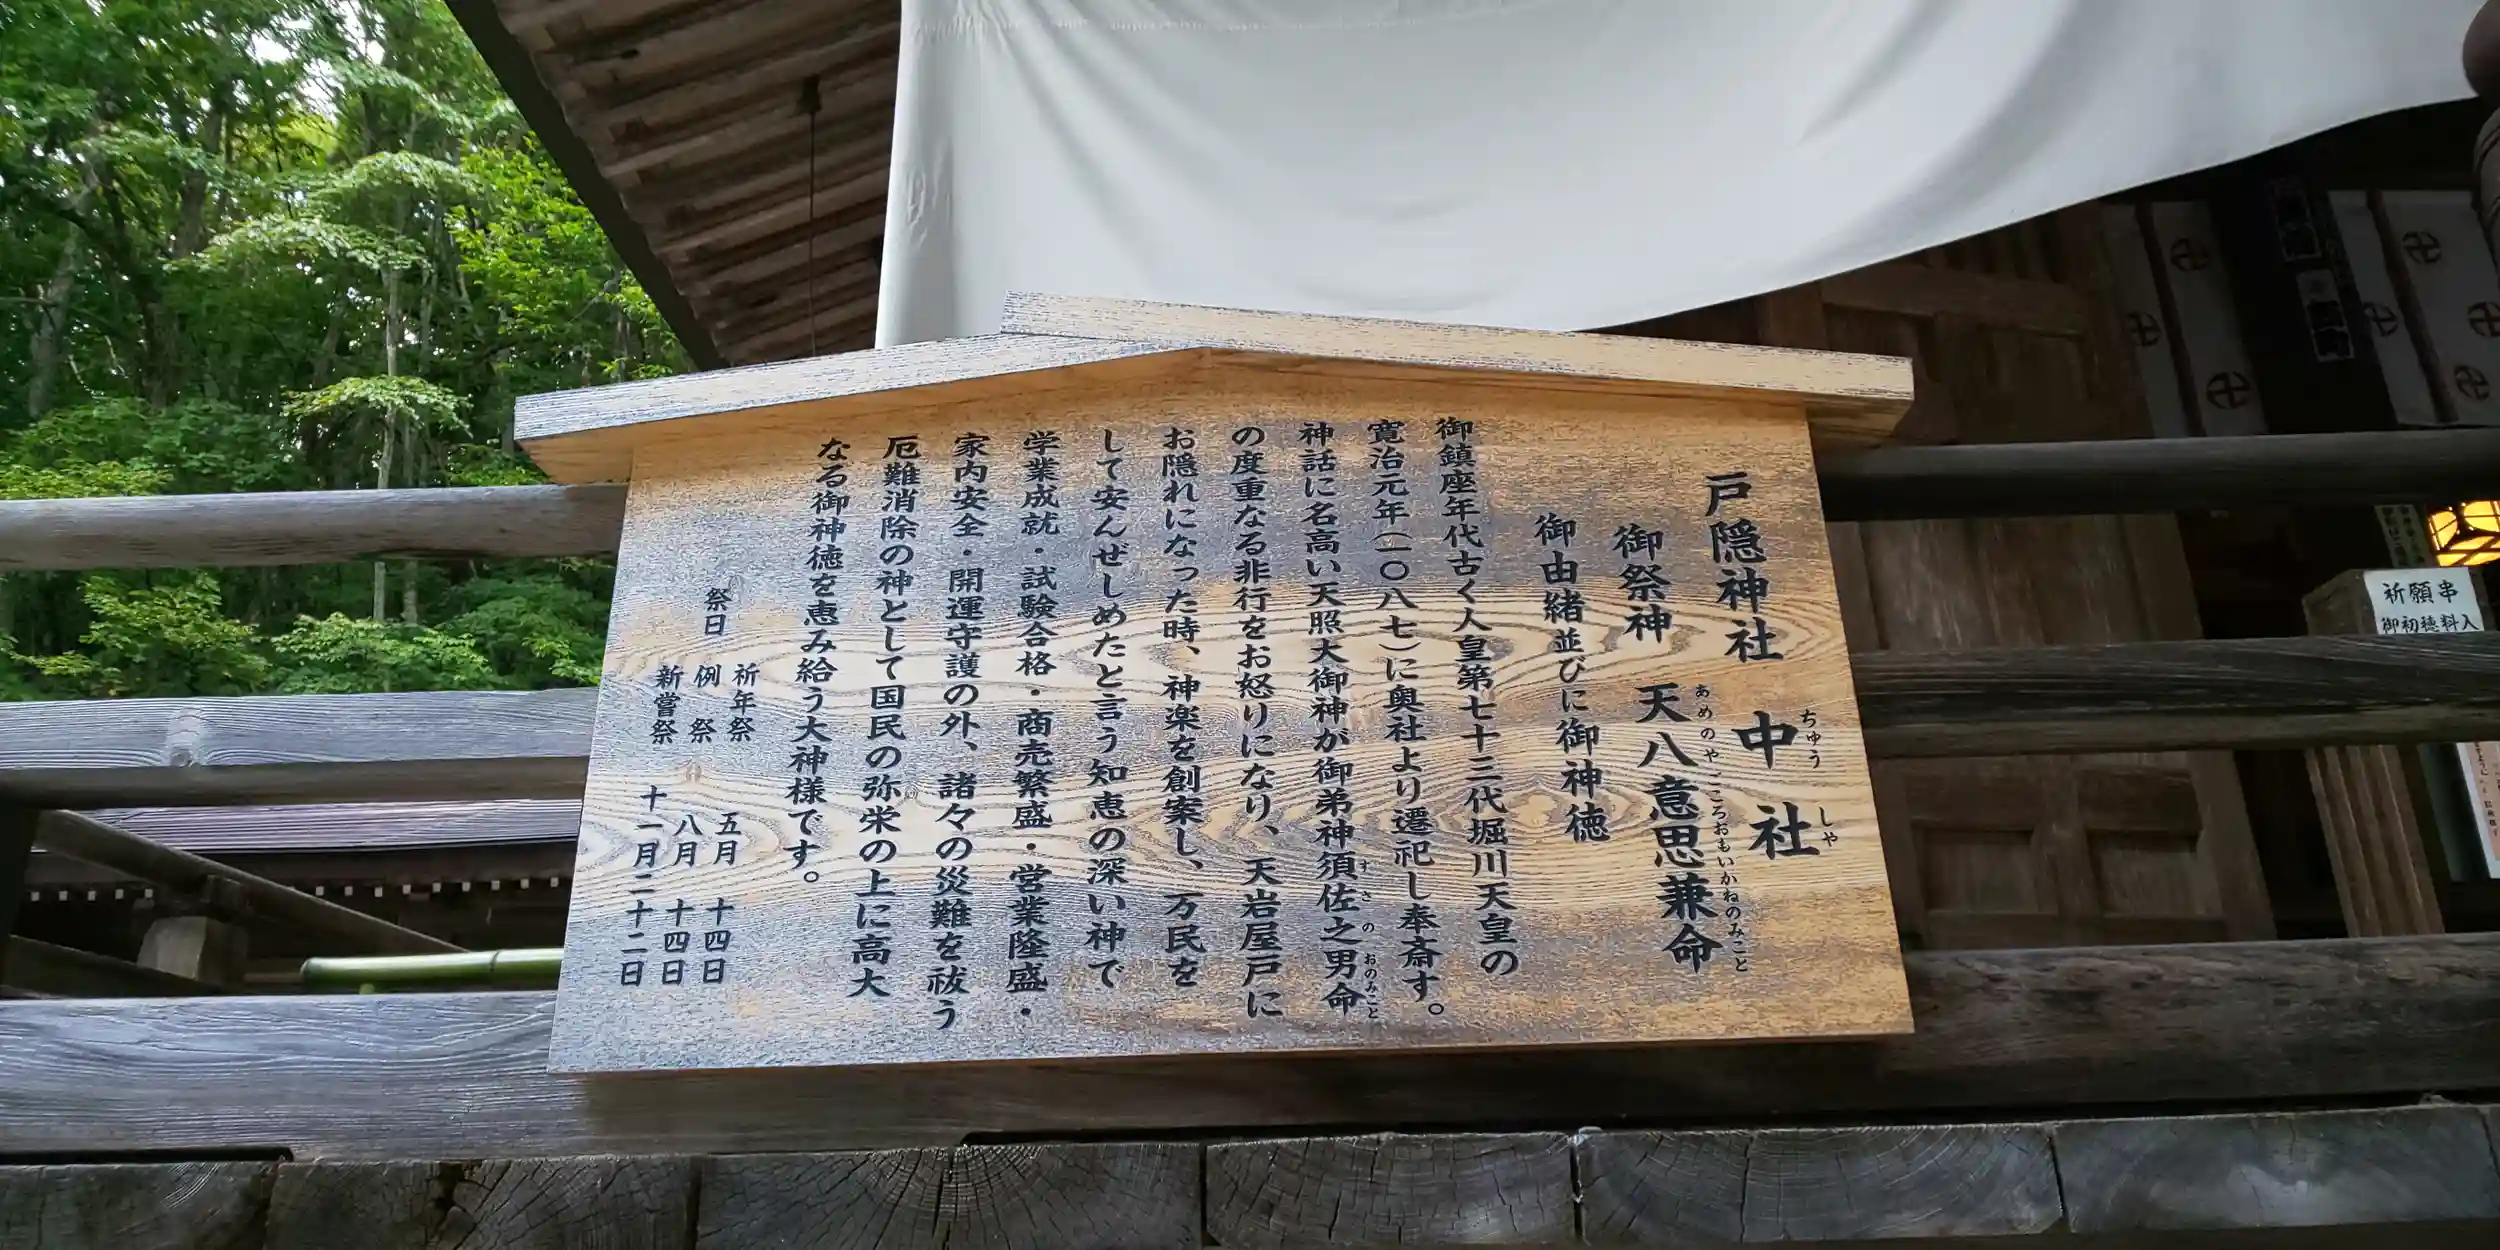 戸隠神社 中社
ちゅう しゃ
御祭神 天八意思兼命
あめのやごころおもいかねのみこと
御由緒並びに御神徳
御鎮座年代古く人皇第七十三代堀川天皇の
寛治元年(一〇八七)に奥社より遷祀し奉斎す。
神話に名高い天照大御神が御弟神須佐之男命
すさのおのみこと
の度重なる非行をお怒りになり、天岩屋戸に
お隠れになった時、神楽を創案し、万民を
して安んぜしめたと言う知恵の深い神で
学業成就・試験合格・商売繁盛・営業隆盛・
家内安全・開運守護の外、諸々の災難を祓う
厄難消除の神として国民の弥栄の上に高大
なる御神徳を恵み給う大神様です。
祭日 祈年祭 五月 十四日
例 祭 八月 十四日
新嘗祭 十一月二十二日
祈願串
御初穂料入